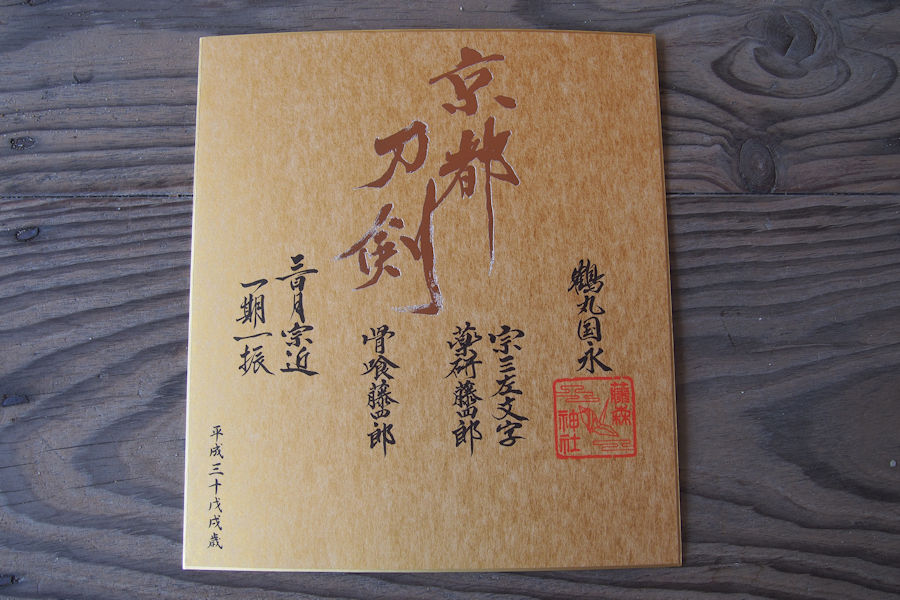 京都
刀剣
鶴丸国永
藤森
神社
宗三左文字
薬研藤四郎
骨喰藤四郎
三日月宗近
一期一振
平成三十戊戌歳